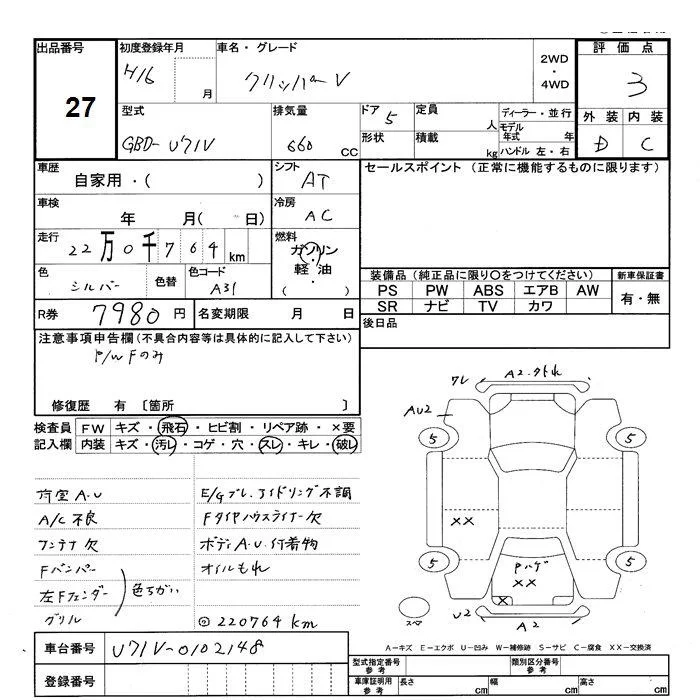 出品番号 初度登録年月 車名・グレード 2WD・4WD 評価点
27 H16 月 クリッパーV 3
型式 排気量 ドア 5 定員 人 ディーラー・並行 外装 内装
GBD-U71V 660 CC 形状 積載 kg モデル年式 年 ハンドル 左・右 D C
車歴 自家用・( ) シフト AT セールスポイント (正常に機能するものに限ります)
車検 年 月( 日) 冷房 AC
走行 22万0千764km 燃料 ガソリン・軽油・( )
色 シルバー 色替 色コード A31
装備品(純正品に限り○をつけてください) 新車保証書
PS PW ABS エアB AW 有・無
SR ナビ TV カワ
R券 7980円 名変期限 月 日 後日品
注意事項申告欄(不具合内容等は具体的に記入して下さい)
P/W Fのみ
修復歴 有 〔箇所 〕
検査員記入欄 FW キズ・飛石・ヒビ割・リペア跡・×要
内装 キズ・汚レ・コゲ・穴・スレ・キレ・破レ
荷室A.U E/Gブレ、アイドリング不調
A/C不良 Fタイヤハウスライナー欠
アンテナ欠 ボディA.U.付着物
Fバンパー オイルもれ
左Fフェンダー 色ちがい
グリル ◎220764km
ワレ A2.タトれ
AU2
5 5
××
5 5
Pハゲ
××
×
スペア U2 A2
A-キズ E-エクボ U-凹み W-補修跡 S-サビ C-腐食 XX-交換済
車台番号 U71V-0102148
登録番号
型式指定番号 参考 類別区分番号 参考
車庫証明用 参考 長さ cm 幅 cm 高さ cm